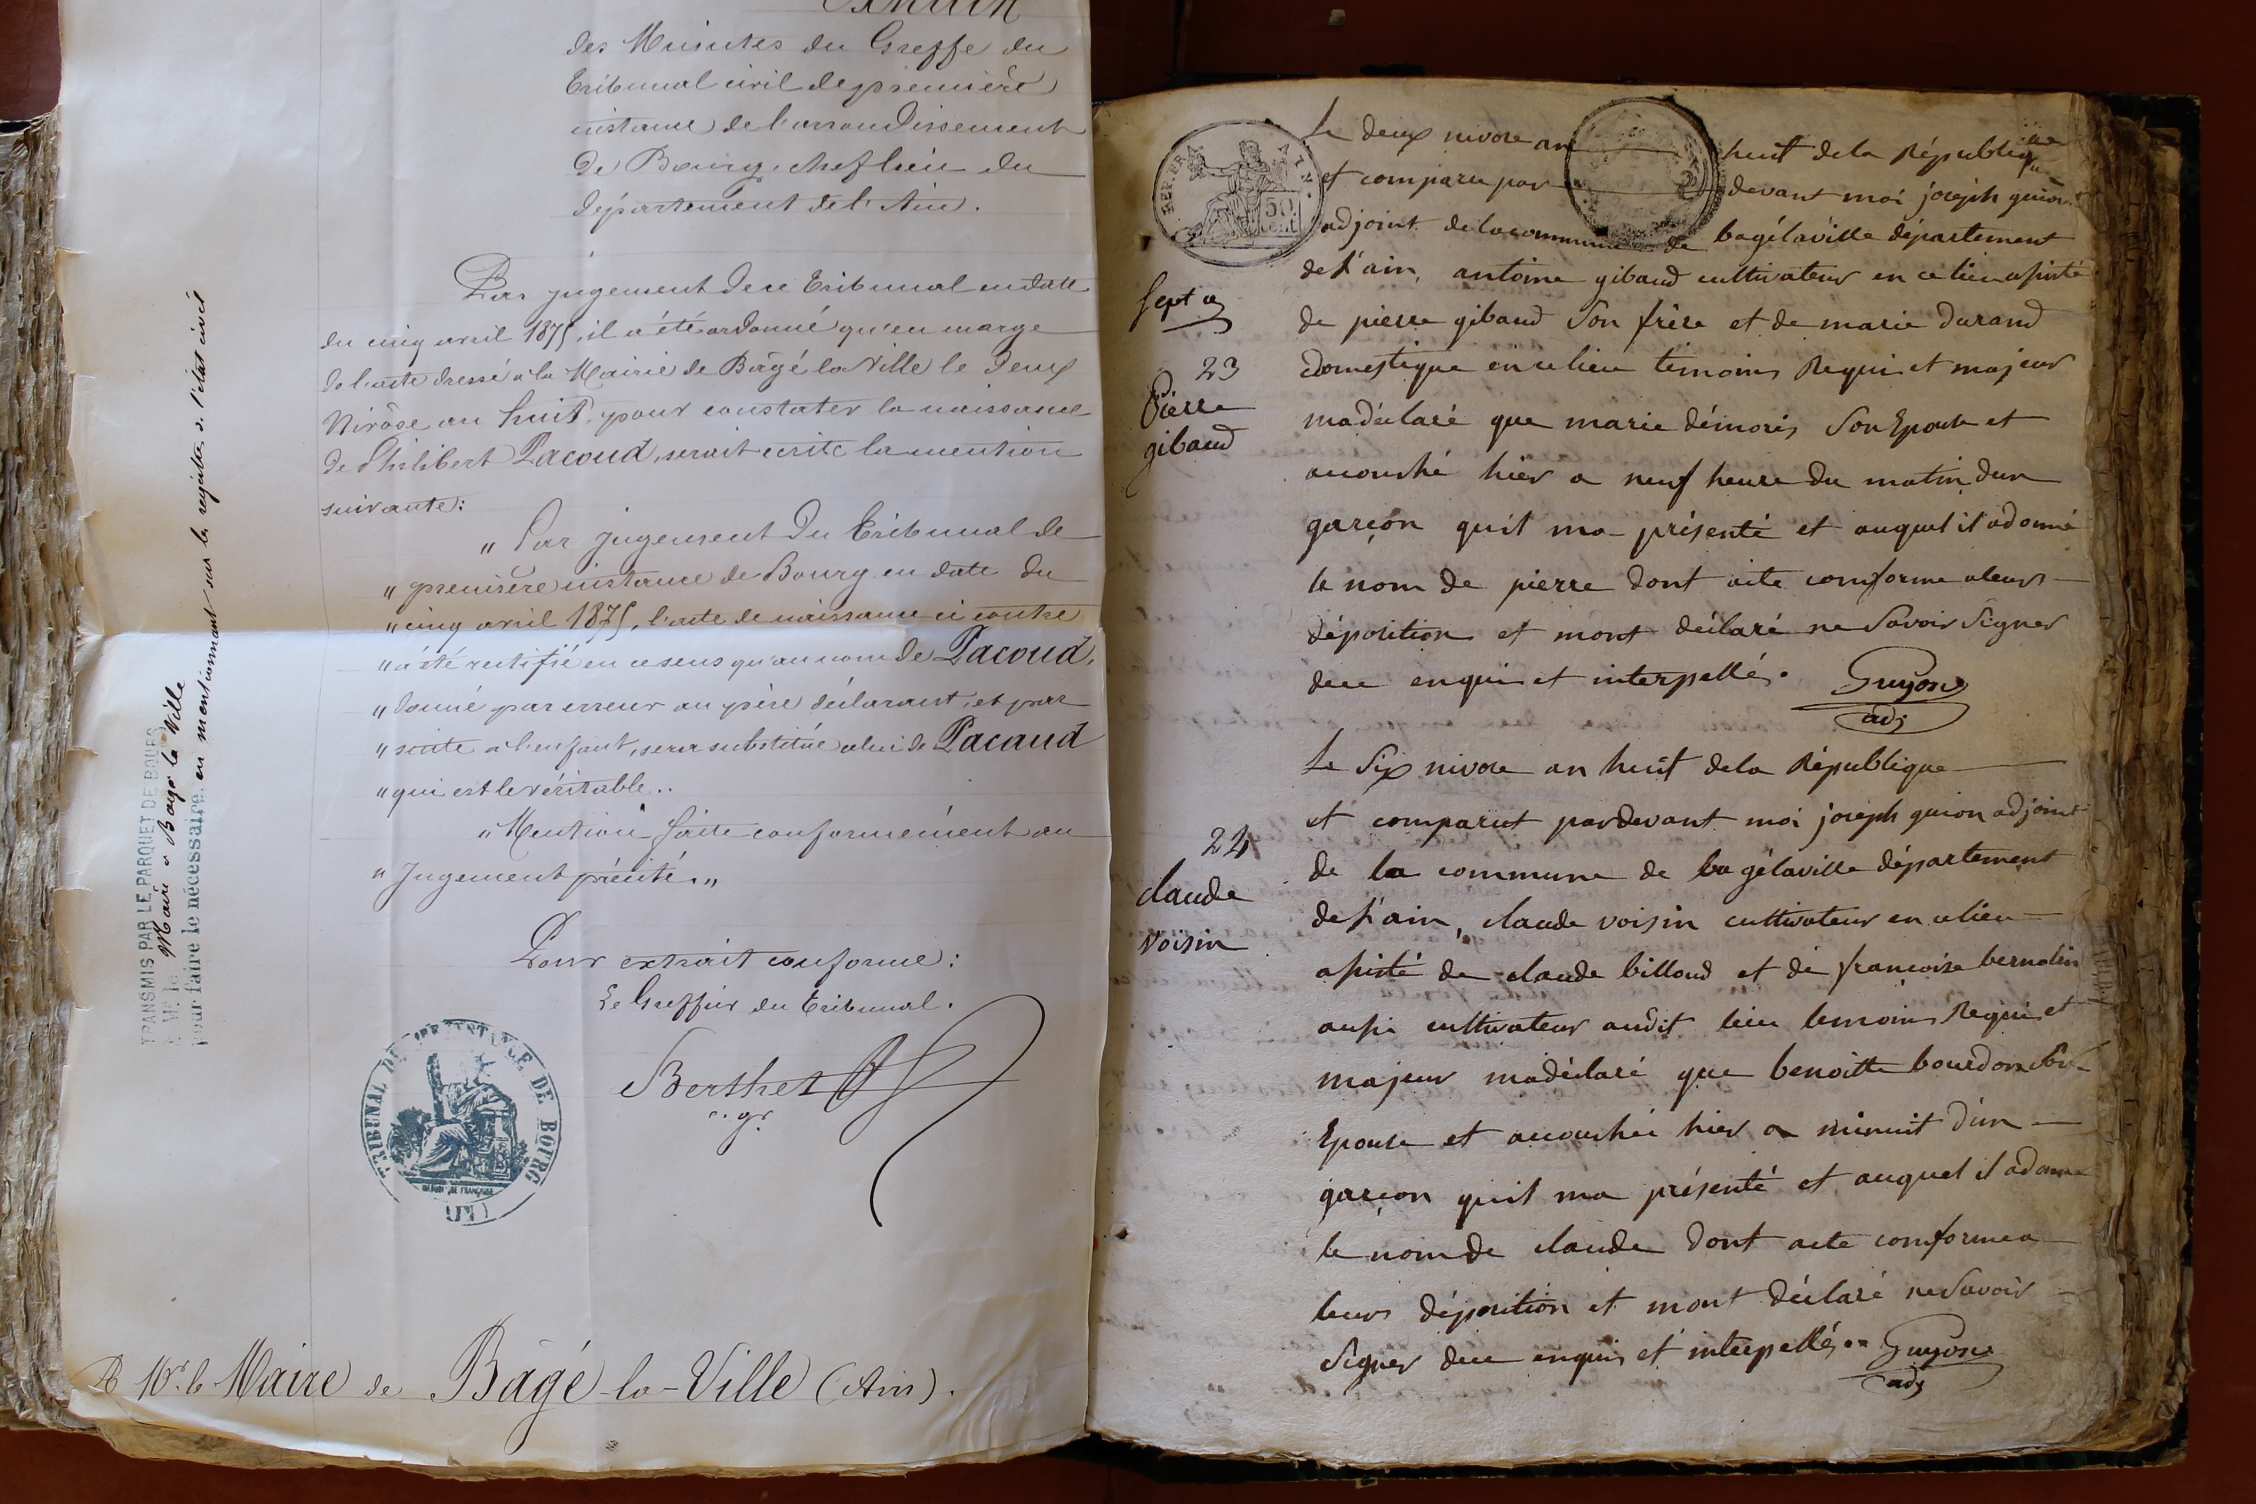 Extrait
des Minutes du Greffe du
Tribunal civil de première
instance de l'arrondissement
de Bourg, chef lieu du
département de l'Ain.
Par jugement de ce Tribunal en date
du cinq avril 1875, il a été ordonné qu'en marge
de l'acte dressé à la Mairie de Bâgé la Ville le deux
Nivôse an huit, pour constater la naissance
de Philibert Pacoud, serait écrite la mention
suivante:
" Par jugement du Tribunal de
" première instance de Bourg en date du
" cinq avril 1875, l'acte de naissance ci contre
" a été rectifié en ce sens qu'au nom de Pacoud,
" donné par erreur au père déclarant, et par
" suite à l'enfant, sera substitué celui de Pacaud
" qui est le véritable..
" Mention faite conformément au
" Jugement précité."
Pour extrait conforme:
Le Greffier du Tribunal.
Berthet
c. gr.
TRIBUNAL DE 1ERE INSTANCE DE BOURG
(AIN)
A Mr. le Maire de Bâgé-la-Ville (Ain).
TRANSMIS PAR LE PARQUET DE BOURG
à M. le Maire de Bagé la Ville
pour faire le nécessaire, en mentionnant sur les registres de l'état civil
REP. FRA
50
CENT.
Le deux nivose an huit dela République
et comparu par devant moi joseph guion
adjoint de la commune de bagélaville département
de l'ain, antoine gibaud cultivateur en ce lieu asisté
de pierre gibaud son frère et de marie durand
domestique en ce lieu témoins Requi et majeur
madéclaré que marie démoris son Epouse et
acouché hier a neuf heure du matin dun
garçon quil ma présenté et auquel il adonné
le nom de pierre dont acte comforme aleurs
déposition et mont déclaré ne savoir signer
dece enquis et interpellés.
Guyon
adj
Sept a
23
Pierre
gibaud
Le six nivose an huit dela République
et comparut pardevant moi joseph guion adjoint
de la commune de bagélaville département
de l'ain, claude voisin cultivateur en ce lieu
asisté de claude billoud et de francoise bernolin
ausi cultivateur audit lieu temoins Requi et
majeur madéclaré que benoitte bourdon son
Epouse et acouchée hier a minuit d'un
garçon quil ma présenté et auquel il adonné
le nom de claude dont acte comforme a
leurs déposition et mont déclaré ne savoir
signer dece enquis et interpellés
Guyon
adj
24
claude
voisin